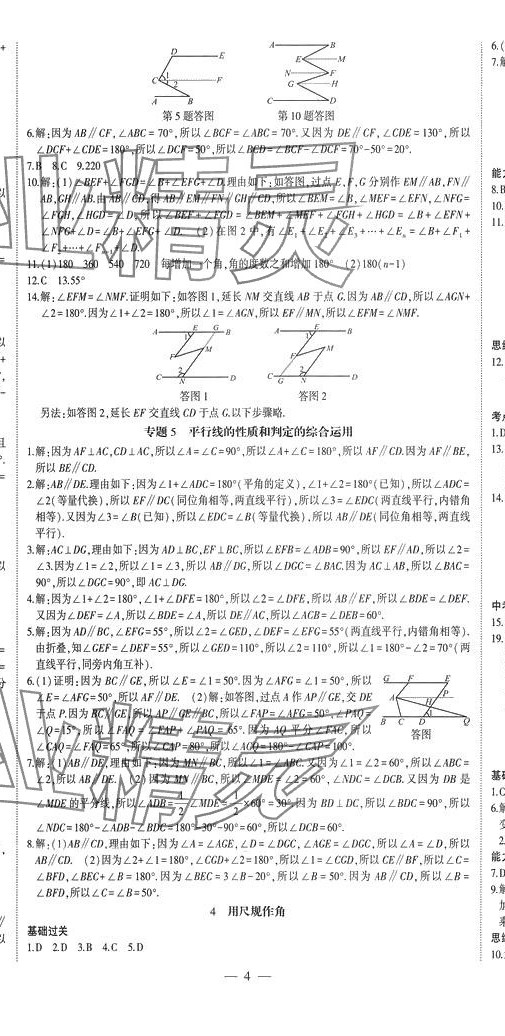 第5题答图 第10题答图
6.解:因为AB∥CF,∠ABC=70°,所以∠BCF=∠ABC=70°.又因为DE∥CF,∠CDE=130°,所以
∠DCF+∠CDE=180°,所以∠DCF=50°,所以∠BCD=∠BCF-∠DCF=70°-50°=20°.
7.B 8.C 9.220
10.解:(1)∠BEF+∠FGD=∠B+∠EFG+∠D.理由如下:如答图,过点E,F,G分别作EM∥AB,FN∥
AB,GH∥AB.由AB∥CD,得AB∥EM∥FN∥GH∥CD,所以∠BEM=∠B,∠MEF=∠EFN,∠NFG=
∠FGH,∠HGD=∠D,所以∠BEF+∠FGD=∠BEM+∠MEF+∠FGH+∠HGD=∠B+∠EFN+
∠NFG+∠D=∠B+∠EFG+∠D. (2)在图2中,有∠E₁+∠E₂+∠E₃+⋯+∠Eₙ=∠B+∠F₁+
∠F₂+⋯+∠Fₙ₋₁+∠D.
11.(1)180 360 540 720 每增加一个角,角的度数之和增加180° (2)180(n-1)
12.C 13.55°
14.解:∠EFM=∠NMF.证明如下:如答图1,延长NM交直线AB于点G.因为AB∥CD,所以∠AGN+
∠2=180°.因为∠1+∠2=180°,所以∠1=∠AGN,所以EF∥MN,所以∠EFM=∠NMF.
答图1 答图2
另法:如答图2,延长EF交直线CD于点G.以下步骤略.
专题5 平行线的性质和判定的综合运用
1.解:因为AF⊥AC,CD⊥AC,所以∠A=∠C=90°,所以∠A+∠C=180°,所以AF∥CD.因为AF∥BE,
所以BE∥CD.
2.解:AB∥DE.理由如下:因为∠1+∠ADC=180°(平角的定义),∠1+∠2=180°(已知),所以∠ADC=
∠2(等量代换),所以EF∥DC(同位角相等,两直线平行),所以∠3=∠EDC(两直线平行,内错角
相等).又因为∠3=∠B(已知),所以∠EDC=∠B(等量代换),所以AB∥DE(同位角相等,两直线
平行).
3.解:AC⊥DG,理由如下:因为AD⊥BC,EF⊥BC,所以∠EFB=∠ADB=90°,所以EF∥AD,所以∠2=
∠3.因为∠1=∠2,所以∠1=∠3,所以AB∥DG,所以∠DGC=∠BAC.因为AC⊥AB,所以∠BAC=
90°,所以∠DGC=90°,即AC⊥DG.
4.解:因为∠1+∠2=180°,∠1+∠DFE=180°,所以∠2=∠DFE,所以AB∥EF,所以∠BDE=∠DEF.
又因为∠DEF=∠A,所以∠BDE=∠A,所以DE∥AC,所以∠ACB=∠DEB=60°.
5.解:因为AD∥BC,∠EFG=55°,所以∠2=∠GED,∠DEF=∠EFG=55°(两直线平行,内错角相等).
由折叠,知∠GEF=∠DEF=55°,所以∠GED=110°,所以∠2=110°,所以∠1=180°-∠2=70°(两
直线平行,同旁内角互补).
6.(1)证明:因为BC∥GE,所以∠E=∠1=50°.因为∠AFG=∠1=50°,所以
∠E=∠AFG=50°,所以AF∥DE. (2)解:如答图,过点A作AP∥GE,交DE
于点P.因为BC∥GE,所以AP∥GE∥BC,所以∠FAP=∠AFG=50°,∠PAQ=
∠Q=15°,所以∠FAQ=∠FAP+∠PAQ=65°.因为AQ平分∠FAC,所以
∠CAQ=∠FAQ=65°,所以∠CAP=80°,所以∠ACQ=180°-∠CAP=100°.
答图
7.解:(1)AB∥DE,理由如下:因为MN∥BC,所以∠1=∠ABC.又因为∠1=∠2=60°,所以∠ABC=
∠2,所以AB∥DE. (2)因为MN∥BC,所以∠MDE=∠2=60°,∠NDC=∠DCB.又因为DB是
∠MDE的平分线,所以∠ADB=1/2∠MDE=1/2×60°=30°.因为BD⊥DC,所以∠BDC=90°,所以
∠NDC=180°-∠ADB-∠BDC=180°-30°-90°=60°,所以∠DCB=60°.
8.解:(1)AB∥CD,理由如下:因为∠A=∠AGE,∠D=∠DGC,∠AGE=∠DGC,所以∠A=∠D,所以
AB∥CD. (2)因为∠2+∠1=180°,∠CGD+∠2=180°,所以∠1=∠CGD,所以CE∥BF,所以∠C=
∠BFD,∠BEC+∠B=180°.因为∠BEC=3∠B-20°,所以∠B=50°.因为AB∥CD,所以∠B=
∠BFD,所以∠C=∠B=50°.
4 用尺规作角
基础过关
1.D 2.D 3.B 4.C 5.D
— 4 —